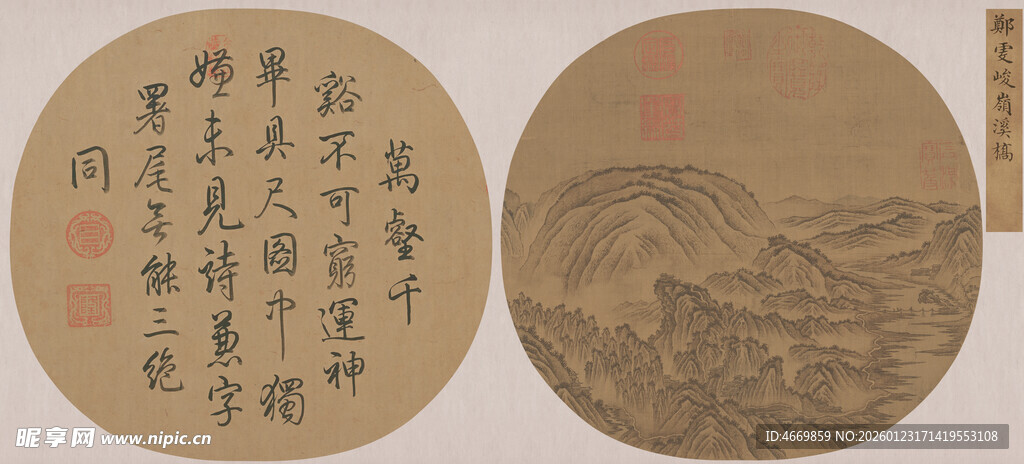 鄭虔峻嶺溪橋
萬壑千
谿不可窮運神
畢具尺圖中獨
嫌未見詩兼字
署尾無能三絕
同
昵享网 www.nipic.cn
ID:4669859 NO:20260123171419553108